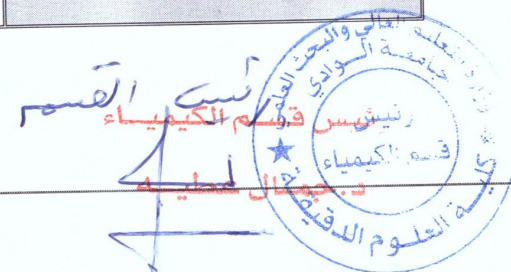 رئيس القسم
رئيس قسم الكيمياء
د.جمال عطية
وزارة التعليم العالي والبحث العلمي
جامعة الوادي
رئيس
قسم الكيمياء
كلية العلوم الدقيقة